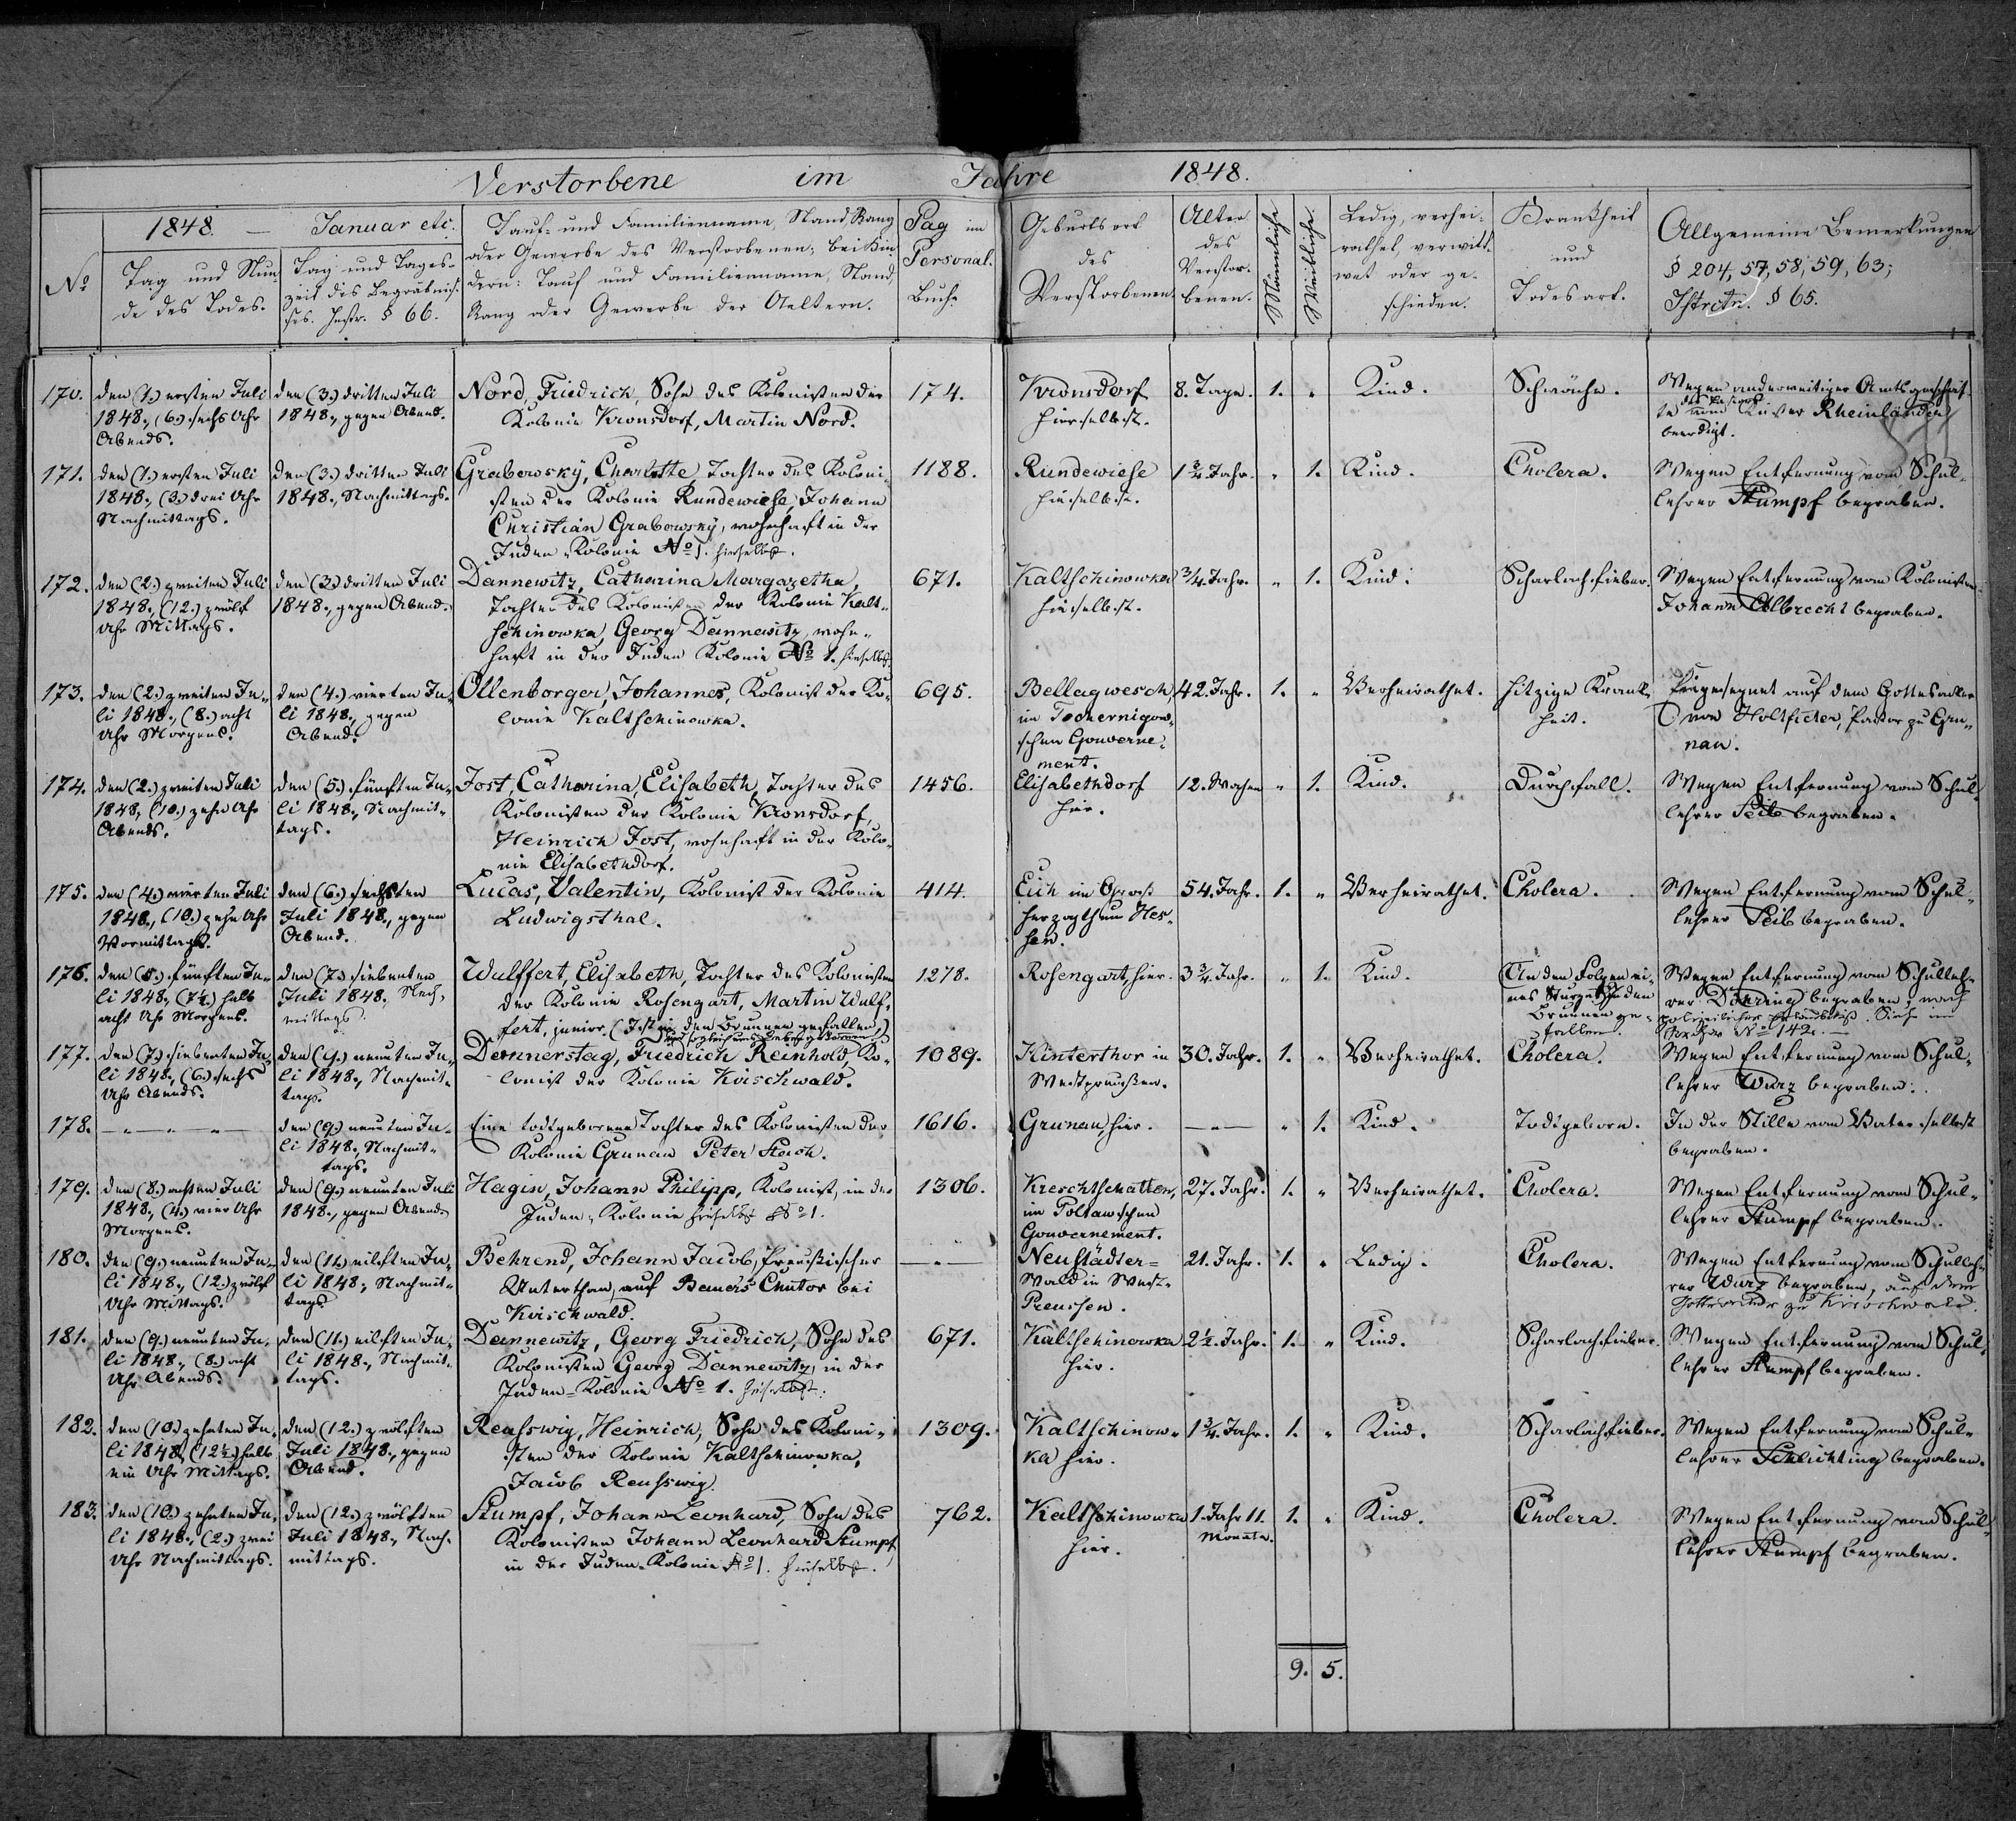 Verstorbene im Jahre 1848.
1848. — Januar etc.
No
Tag und Stun-
de des Todes.
Tag und Tages-
zeit des Begräbnis-
ses. Instr. § 66.
Tauf- und Familienname, Stand Rang
oder Gewerbe des Verstorbenen; bei Kin-
dern: Tauf und Familienname, Stand,
Rang oder Gewerbe der Aeltern.
Pag im
Personal.
Buch.
Geburtsort
des
Verstorbenen.
Alter
des
Verstor-
benen.
Männliche
Weibliche.
Ledig, verhei-
rathet, verwitt-
wet oder ge-
schieden.
Krankheit
und
Todesart.
Allgemeine Bemerkungen
§ 204, 57, 58, 59, 63;
Istrctn. § 65.
170.
den (1.) ersten Juli
1848., (6.) sechs Uhr
Abends.
den (3.) dritten Juli
1848., gegen Abend.
Nord, Friedrich, Sohn des Kolonisten der
Kolonie Kronsdorf, Martin Nord.
174.
Kronsdorf
hierselbst.
8. Tage.
1.
"
Kind.
Schwäche.
Wegen anderweitiger Amtsgeschäf-
te des Pastors vom Küster Rheinländer
beerdigt.
171.
den (1.) ersten Juli
1848., (3.) drei Uhr
Nachmittags.
den (3.) dritten Juli
1848., Nachmittags.
Grabowsky, Charlotte, Tochter des Koloni-
sten der Kolonie Rundewiese, Johann
Christian Grabowsky, wohnhaft in der
Juden-Kolonie No 1. hieselbst.
1188.
Rundewiese
hieselbst.
1 3/4. Jahr.
"
1.
Kind.
Cholera.
Wegen Entfernung vom Schul-
lehrer Stumpf begraben.
172.
den (2.) zweiten Juli
1848., (12.) zwölf
Uhr Mittags.
den (3.) dritten Juli
1848., gegen Abend.
Dannewitz, Catharina Margaretha,
Tochter des Kolonisten der Kolonie Kalt-
schinowka, Georg Dannewitz, wohn-
haft in der Juden Kolonie No 1. hieselbst.
671.
Kaltschinowka
hieselbst.
3/4. Jahr.
"
1.
Kind.
Scharlachfieber.
Wegen Entfernung vom Kolonisten
Johann Albrecht begraben.
173.
den (2.) zweiten Ju-
li 1848., (8.) acht
Uhr Morgens.
den (4.) vierten Ju-
li 1848., gegen
Abend.
Ollenborger, Johannes, Kolonist der Ko-
lonie Kaltschinowka.
695.
Bellagwesch,
im Tschernigow-
schen Gouverne-
ment.
42. Jahr.
1.
"
Verheirathet.
hitzige Krank-
heit.
Eingesegnet auf dem Gottesacker
von Holtfreter, Pastor zu Gru-
nau.
174.
den (2.) zweiten Juli
1848., (10.) zehn Uhr
Abends.
den (5.) fünften Ju-
li 1848., Nachmit-
tags.
Jost, Catharina, Elisabeth, Tochter des
Kolonisten der Kolonie Kronsdorf,
Heinrich Jost, wohnhaft in der Kolo-
nie Elisabethdorf.
1456.
Elisabethdorf
hier.
12. Wochen
"
1.
Kind.
Durchfall.
Wegen Entfernung vom Schul-
lehrer Seib begraben.
175.
den (4.) vierten Juli
1848., (10.) zehn Uhr
Vormittags.
den (6.) sechsten
Juli 1848., gegen
Abend.
Lucas, Valentin, Kolonist der Kolonie
Ludwigsthal.
414.
Eich im Gross-
herzogthum Hes-
sen.
54. Jahr.
1.
"
Verheirathet.
Cholera.
Wegen Entfernung vom Schul-
lehrer Seib begraben.
176.
den (5.) fünften Ju-
li 1848., (7½.) halb
acht Uhr Morgens.
den (7.) siebenten
Juli 1848., Nach-
mittags.
Wulffert, Elisabeth, Tochter des Kolonisten
der Kolonie Rosengart, Martin Wulf-
fert, junior. (Ist in den Brunnen gefallen,
und sogleich ums Leben gekommen.)
1278.
Rosengart, hier.
3 3/4. Jahr.
"
1.
Kind.
An den Folgen ei-
nes Sturzes in den
Brunnen ge-
fallen.
Wegen Entfernung vom Schulleh-
rer Döhring begraben; nach
polizeilicher Erlaubniß. Siehe im
No 142.
177.
den (7.) siebenten Ju-
li 1848., (6.) sechs
Uhr Abends.
den (9.) neunten Ju-
li 1848., Nachmit-
tags.
Donnerstag, Friedrich Reinhold, Ko-
lonist der Kolonie Kirschwald.
1089.
Kinterthor in
Westpreußen.
30. Jahr.
1.
"
Verheirathet.
Cholera.
Wegen Entfernung vom Schul-
lehrer Wurz begraben.
178.
— " — " — " —
den (9.) neunten Ju-
li 1848. Nachmit-
tags.
Eine todtgeborene Tochter des Kolonisten der
Kolonie Grunau Peter Stach.
1616.
Grunau, hier.
— " —
"
1.
Kind.
Todtgeboren.
In der Stille vom Vater selbst
begraben.
179.
den (8.) achten Juli
1848., (4.) vier Uhr
Morgens.
den (9.) neunten Juli
1848., gegen Abend.
Hagin, Johann Philipp, Kolonist, in der
Juden-Kolonie hieselbst No 1.
1306.
Kreschtschatten,
im Poltawschen
Gouvernement.
27. Jahr.
1.
"
Verheirathet.
Cholera.
Wegen Entfernung vom Schul-
lehrer Stumpf begraben.
180.
den (9.) neunten Ju-
li 1848., (12.) zwölf
Uhr Mittags.
den (11.) eilften Ju-
li 1848., Nachmit-
tags.
Behrend, Johann Jacob, Preußischer
Unterthan, auf Bauers Chutor bei
Kirschwald.
— " —
Neustädter-
Wald in West-
Preussen.
21. Jahr.
1.
"
Ledig.
Cholera.
Wegen Entfernung vom Schulleh-
rer Wurz begraben, auf dem
Gottesacker zu Kirschwald.
181.
den (9.) neunten Ju-
li 1848., (8.) acht
Uhr Abends.
den (11.) eilften Ju-
li 1848., Nachmit-
tags.
Dannewitz, Georg Friedrich, Sohn des
Kolonisten Georg Dannewitz, in der
Juden-Kolonie No 1. hieselbst.
671.
Kaltschinowka
hier.
2½. Jahr.
1.
"
Kind.
Scharlachfieber.
Wegen Entfernung vom Schul-
lehrer Stumpf begraben.
182.
den (10.) zehnten Ju-
li 1848, (12½.) halb
ein Uhr Mittags.
den (12.) zwölften
Juli 1848., gegen
Abend.
Reusswig, Heinrich, Sohn des Koloni-
sten der Kolonie Kaltschinowka,
Jacob Reusswig.
1309.
Kaltschinow-
ka hier.
1 3/4. Jahr.
1.
"
Kind.
Scharlachfieber.
Wegen Entfernung vom Schul-
lehrer Schlichting begraben.
183.
den (10.) zehnten Ju-
li 1848., (2.) zwei
Uhr Nachmittags.
den (12.) zwölften
Juli 1848., Nach-
mittags.
Stumpf, Johann Leonhard, Sohn des
Kolonisten Johann Leonhard Stumpf,
in der Juden-Kolonie No 1. hieselbst.
762.
Kaltschinowka
hier.
1. Jahr 11.
Monate.
1.
"
Kind.
Cholera.
Wegen Entfernung vom Schul-
lehrer Stumpf begraben.
9. 5.